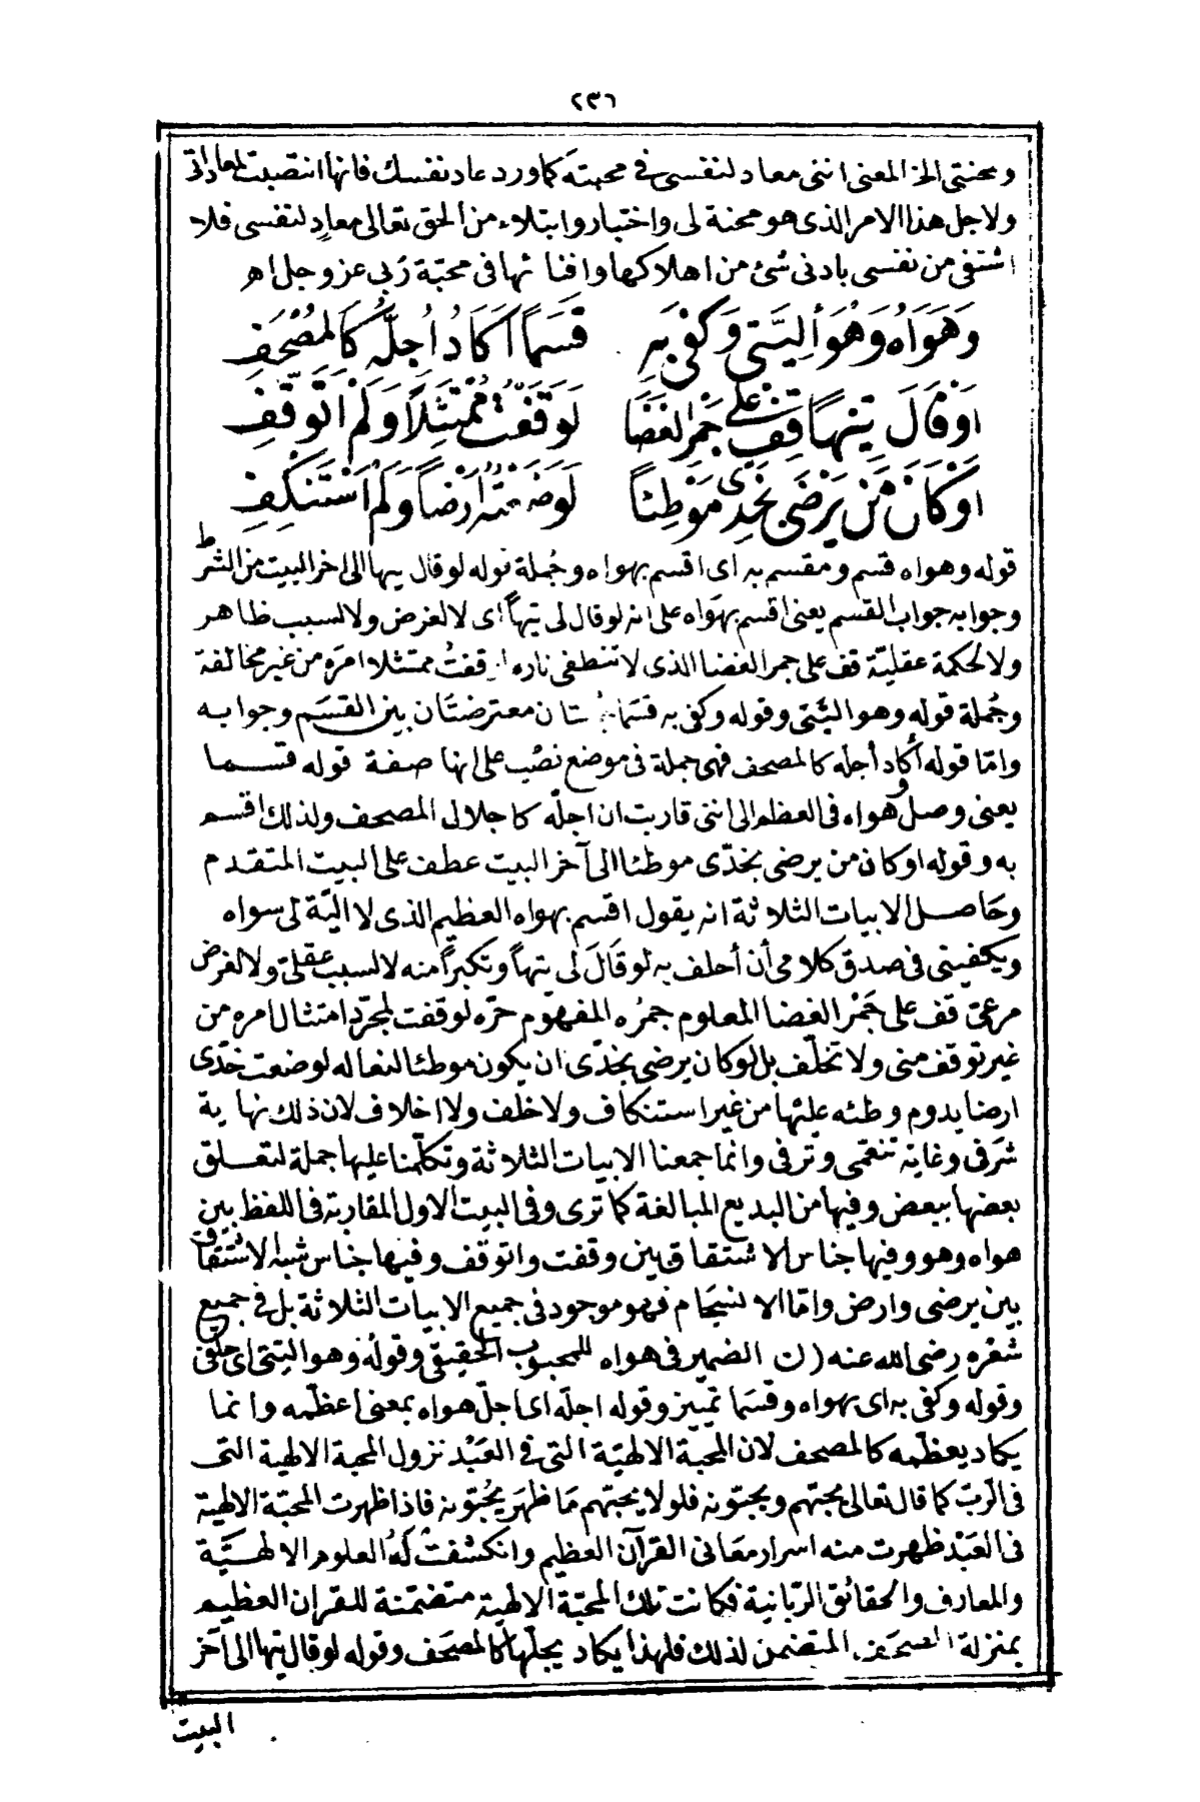 ٢٣٦
ومحنتى الخ المعنى اننى معاد لنفسى فى محبته كما ورد عاد نفسك فانها انتصبت لمعاداتى
ولاجل هذا الامر الذى هو محنة لى واختبار وابتلاء من الحق تعالى معادٍ لنفسى فلا
اشتفى من نفسى بادنى شئ من اهلاكها وافنائها فى محبّة رَبى عز وجل اهـ
وَهَوَاهُ وَهُوَ أَلِيَّتى وَكَفى بَهِ قَسَمًا اَكَادُ اُجِلَّهُ كَالمُصْحَفِ
اَوْ قَالَ تِيهًا قِفْ عَلى جَمْرِ الغَضَا لَوَقَفْتُ مُمْتَثِلاً وَلَمْ اَتَوَقّفِ
اَوْ كَانَ مَن يَرْضَى بخَدّى مَوْطِئًا لَوَضَعْتُهُ اَرْضًا وَلَمْ اَسْتَنكِفِ
قوله وهواه قسم ومقسم به اى اقسم بهواه وجُملة قوله لو قال تيها الى اخر البيت من الشرط
وجوابه جواب القسم يعنى اقسم بهَواه على انه لو قال لى تيهًا اى لا لغرض ولا لسبب ظاهر
ولا لحكمة عقليّة قف على جمر الغضا الذى لا تنطفى ناره لوقفتُ ممتثلا امرَه من غير مخالفة
وجُملة قوله وهو اليّتى وقوله وكفى به قسَما جملتان معترضتان بين القسَم وجوابه
وامّا قوله أكاد أجله كالمصحف فهى جملة فى موضع نصْب على انها صفة قوله قسما
يعنى وصل هواه فى العظم الى اننى قاربت ان اجلّه كاجلال المصحف ولذلك اقسم
به وقوله او كان من يرضى بخدّى موطئا الى آخر البيت عطف على البيت المتقدم
وحَاصل الابيات الثلاثة انه يقول اقسم بهواه العظيم الذى لا اليّة لى سواه
ويكفينى فى صدق كلامى أن أحلف به لو قَالَ لى تيهًا وتكبرًا منه لا لسبب عقلىّ ولا لغرض
مرعىّ قف على جَمْر الغضا المعلوم جمرُه المفهوم حرّه لوقفت لمجرّد امتثال امره من
غير توقف منى ولا تخلّف بل لو كان يرضى بخدّى ان يكون موطئا لنعاله لوضعت خدّى
ارضا يدوم وطئه عليْها من غير استنكاف ولا خلف ولا اخلاف لان ذلك نهاية
شَرَفى وغاية تنعّمى وتَرفى وانما جمعنا الابيات الثلاثة وتكلّمنا عليها جملة لتعلق
بعضها ببعض وفيها من البديع المبالغة كما ترى وفى البيت الاول المقاربة فى اللفظ بين
هواه وهو وفيها جناس الاشتقاق بين وقفت واتوقف وفيها جناس شبه الاشتقاق
بين يرضى وارض وامّا الانسجام فهو موجود فى جميع الابيات الثلاثة بل فى جميع
شعْره رضى الله عنه (ن الضمير فى هواه للمحبوب الحقيقى وقوله وهو اليّتى اى حلفى
وقوله وكفى به اى بهواه وقسَما تمييز وقوله اجلّه اى اجلّ هواه بمعنى اعظّمه وانما
يكاد يعظّمه كالمصحف لان المحبّة الالهيّة التى فى العَبْد نزول المحبة الالهية التى
فى الربّ كما قال تعالى يحبّهم ويحبّونه فلولا يحبّهم مَا ظهرَ يحُبّونه فاذا ظهرت المحبّة الالهية
فى العَبْد ظهرت منه اسرار معَانى القرآن العظيم وانكشفتْ لَهُ العلوم الالهيَّة
والمعارف والحقائق الربّانية فكانت تلك المحبّة الالهية متضمّنة للقران العظيم
بمنزلة المصحَف المتضمن لذلك فلهذا يكاد يجلّها كالمصحَف وقوله لو قال تيها الى آخر
البيت